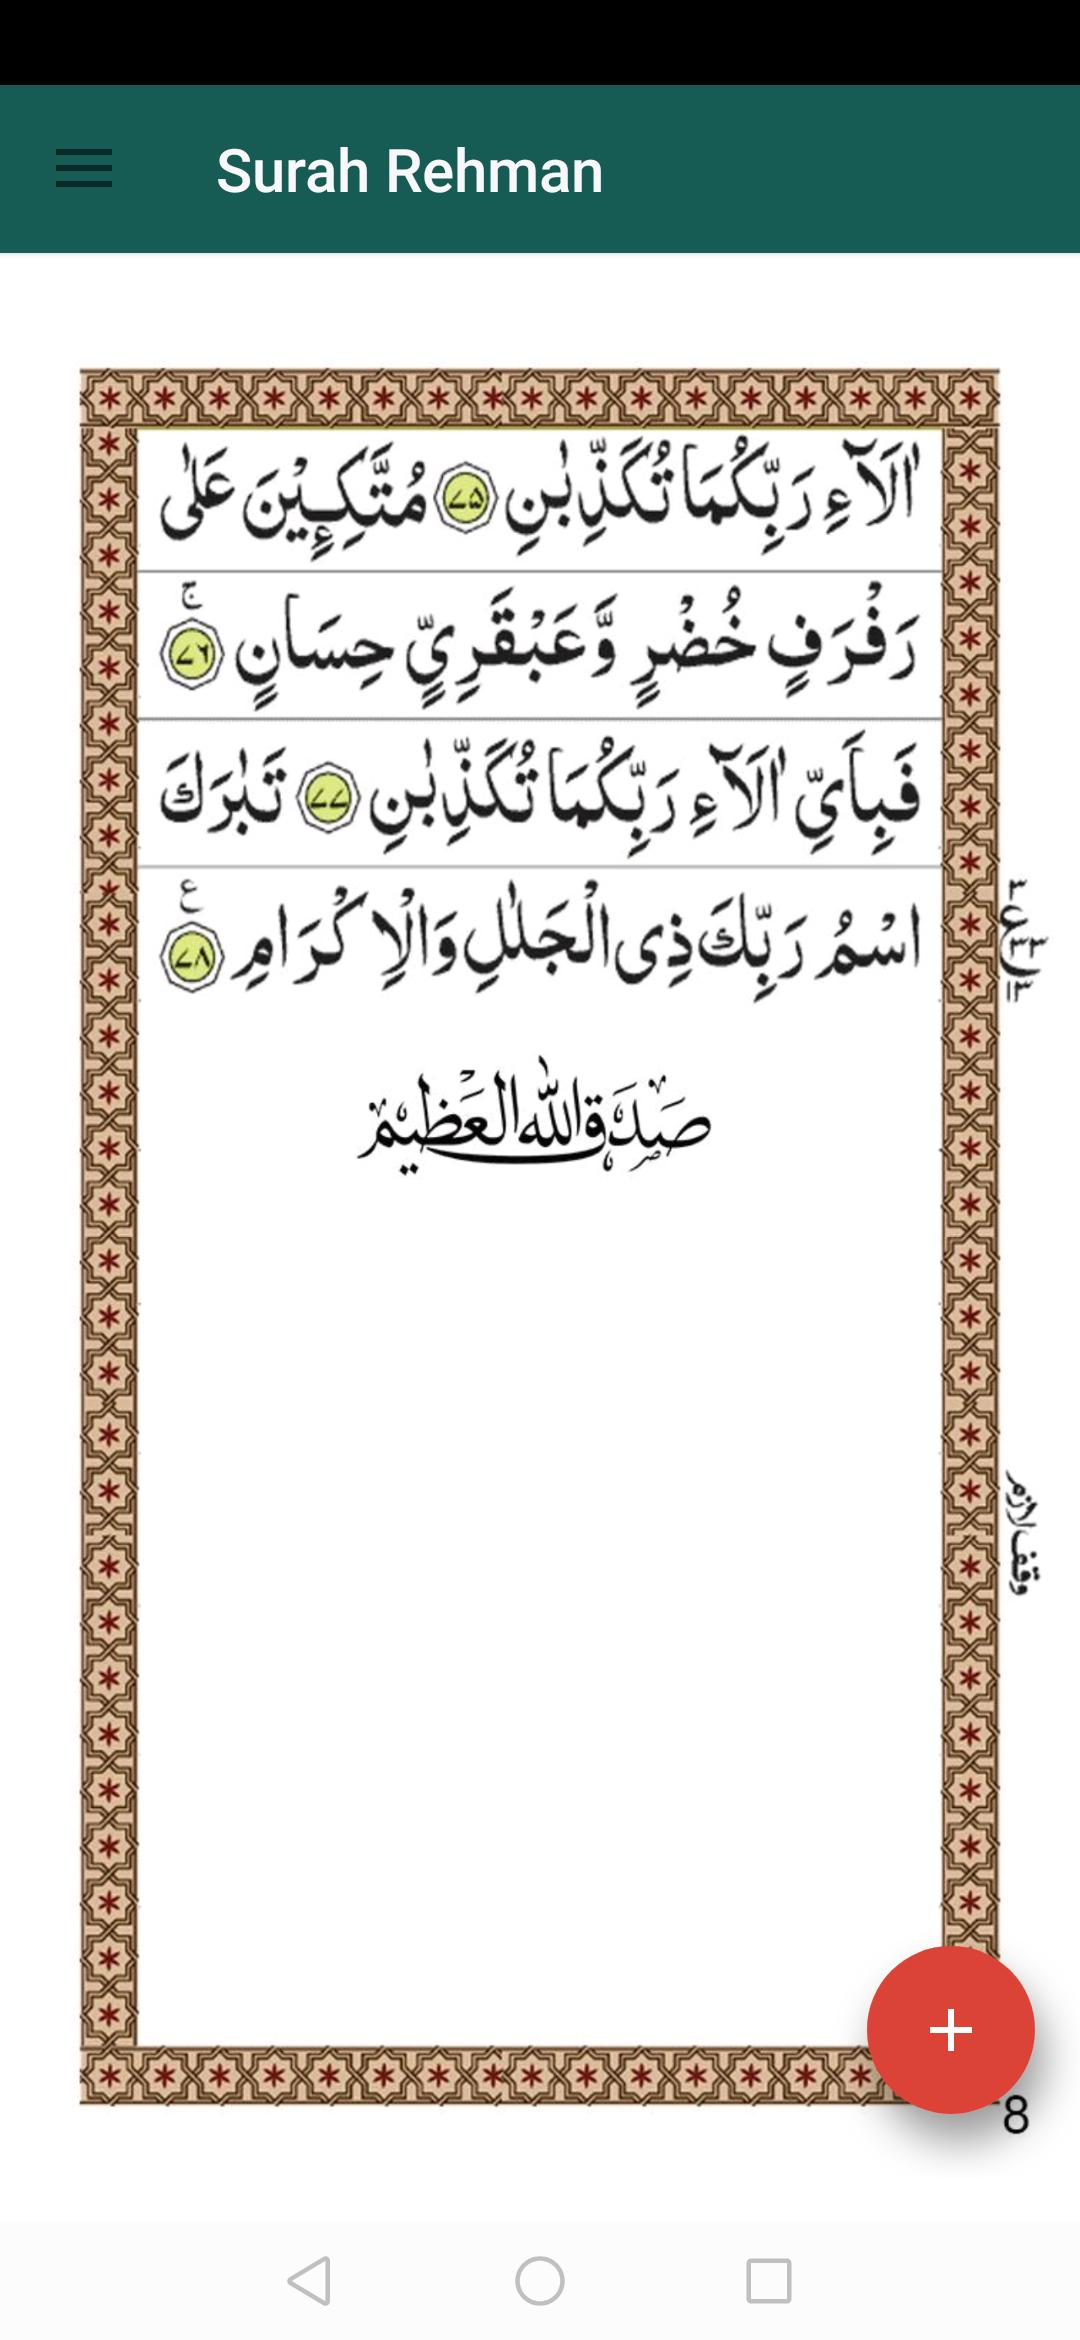 Surah Rehman
اٰلَآءِ رَبِّكُمَا تُكَذِّبٰنِ ﴿۷۵﴾ مُتَّكِـِٕيْنَ عَلٰى
رَفْرَفٍ خُضْرٍ وَّعَبْقَرِيٍّ حِسَانٍ ۚ ﴿۷۶﴾
فَبِاَيِّ اٰلَآءِ رَبِّكُمَا تُكَذِّبٰنِ ﴿۷۷﴾ تَبٰرَكَ
اسْمُ رَبِّكَ ذِى الْجَلٰلِ وَالْاِكْرَامِ ﴿۷۸﴾ ع
۳
ع
۳۳
۱۳
صَدَقَ اللّٰهُ الْعَظِيْم
وقف لازم
8